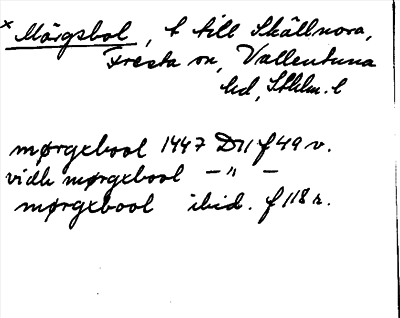 × Märgsbol, t till Skällnora,
Fresta sn, Vallentuna
hd, Sthlm. l
mørgxbool 1447 D11 f 49 v.
vidh mørgxbool – " –
mørgxbool ibid. f 118 r.